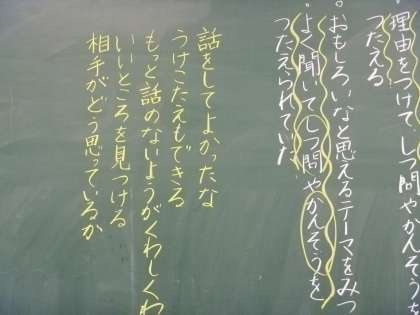 理由をつけてしつ問やかんそうを
つたえる
。おもしろいなと思えるテーマをみつ
。よく聞いてしつ問やかんそうを
つたえられていた
話をしてよかったな
うけこたえもできる
もっと話のないようがくわしくわ
いいところを見つける
相手がどう思っているか